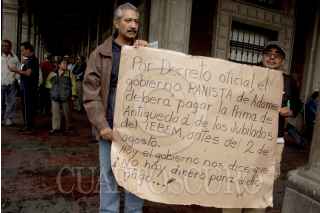 Por Decreto oficial, el
gobierno PANISTA de Adame
debera pagar la Prima de
Antiguedad de los Jubilados
del IEBEM, antes del 2 de
agosto.
Hoy el gobierno nos dice que
¡No hay dinero para dicho
pago...!
CUARTOSCURO